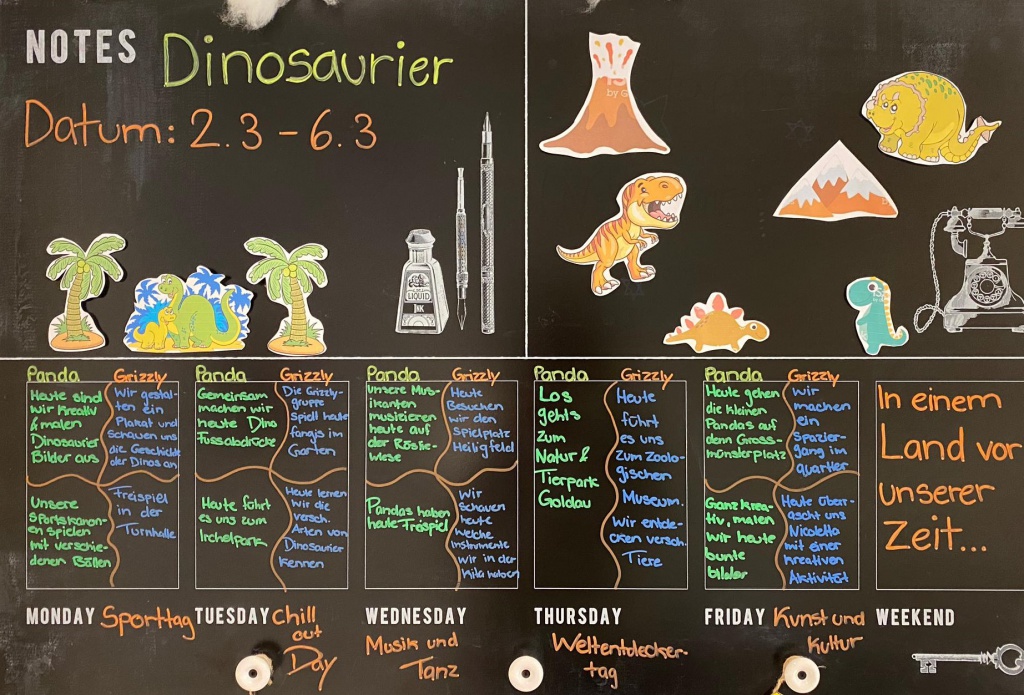 NOTES Dinosaurier
Datum: 2.3 - 6.3
by G
LIQUID
INK
Panda
Heute sind
wir kreativ
& malen
Dinosaurier
Bilder aus
Unsere
Sportskanon-
en spielen
mit verschie-
denen Bällen
Grizzly
Wir gestal-
ten ein
Plakat und
schauen uns
die Geschichte
der Dinos an
Freispiel
in der
Turnhalle
MONDAY Sporttag
Panda
Gemeinsam
machen wir
heute Dino
Fussabdrücke
Heute fährt
es uns zum
Irchelpark
Grizzly
Die Grizzly-
gruppe
spielt heute
fangis im
Garten
Heute lernen
wir die
versch.
Arten von
Dinosaurier
kennen
TUESDAY Chill
out
Day
Panda
Unsere Mus-
ikanten
musizieren
heute auf
der Röslie-
wiese
Pandas haben
heute Freispiel
Grizzly
Heute
Besuchen
wir den
Spielplatz
Heiligfeld
Wir
schauen
heute
welche
Instrumente
wir in der
Kita haben
WEDNESDAY
Musik und
Tanz
Panda
Los
gehts
zum
Natur &
Tierpark
Goldau
Grizzly
Heute
führt
es uns
zum Zoolo-
gischen
Museum.
Wir entde-
cken versch.
Tiere
THURSDAY
Weltentdecker-
tag
Panda
Heute gehen
die kleinen
Pandas auf
denn Gross-
münsterplatz
Ganz krea-
tiv, malen
wir heute
bunte
bilder
Grizzly
Wir
machen
ein
Spazier-
gang im
quartier
Heute über-
ascht uns
Nicoletta
mit einer
kreativen
Aktivität
FRIDAY Kunst und
Kultur
In einem
Land vor
unserer
Zeit...
WEEKEND